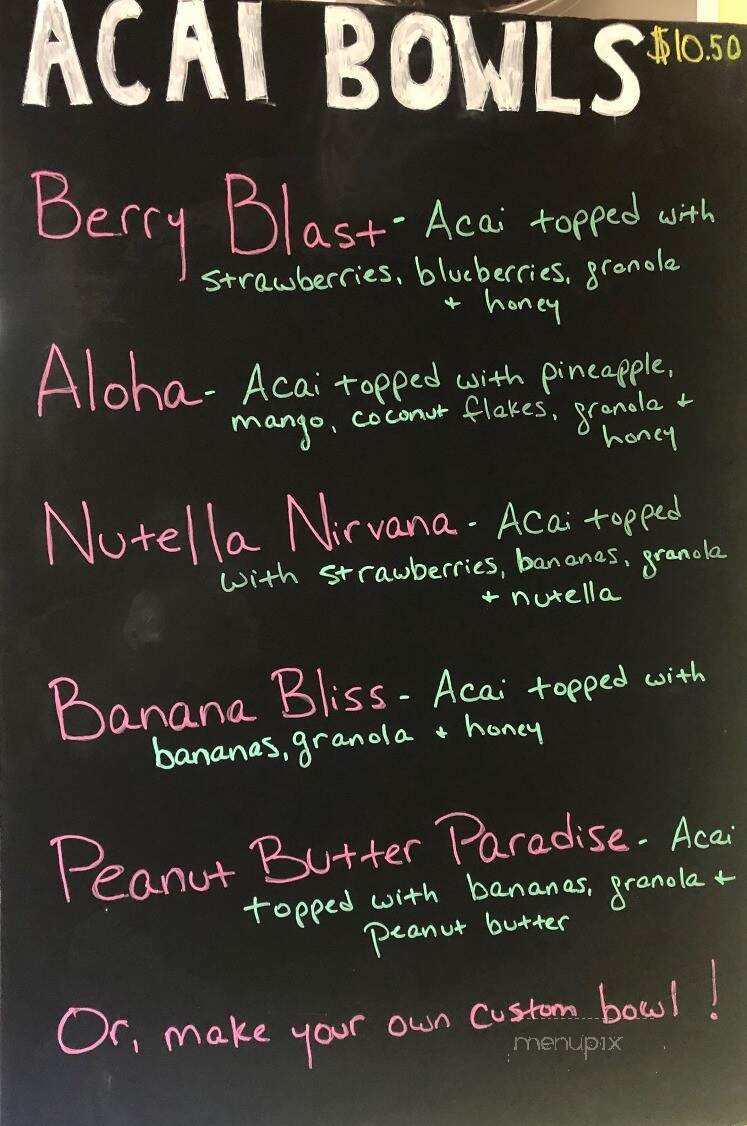 ACAI BOWLS $10.50
Berry Blast - Acai topped with
strawberries, blueberries, granola
+ honey
Aloha - Acai topped with pineapple,
mango, coconut flakes, granola +
honey
Nutella Nirvana - Acai topped
with strawberries, bananas, granola
+ nutella
Banana Bliss - Acai topped with
bananas, granola + honey
Peanut Butter Paradise - Acai
topped with bananas, granola +
peanut butter
Or, make your own custom bowl!
menupix